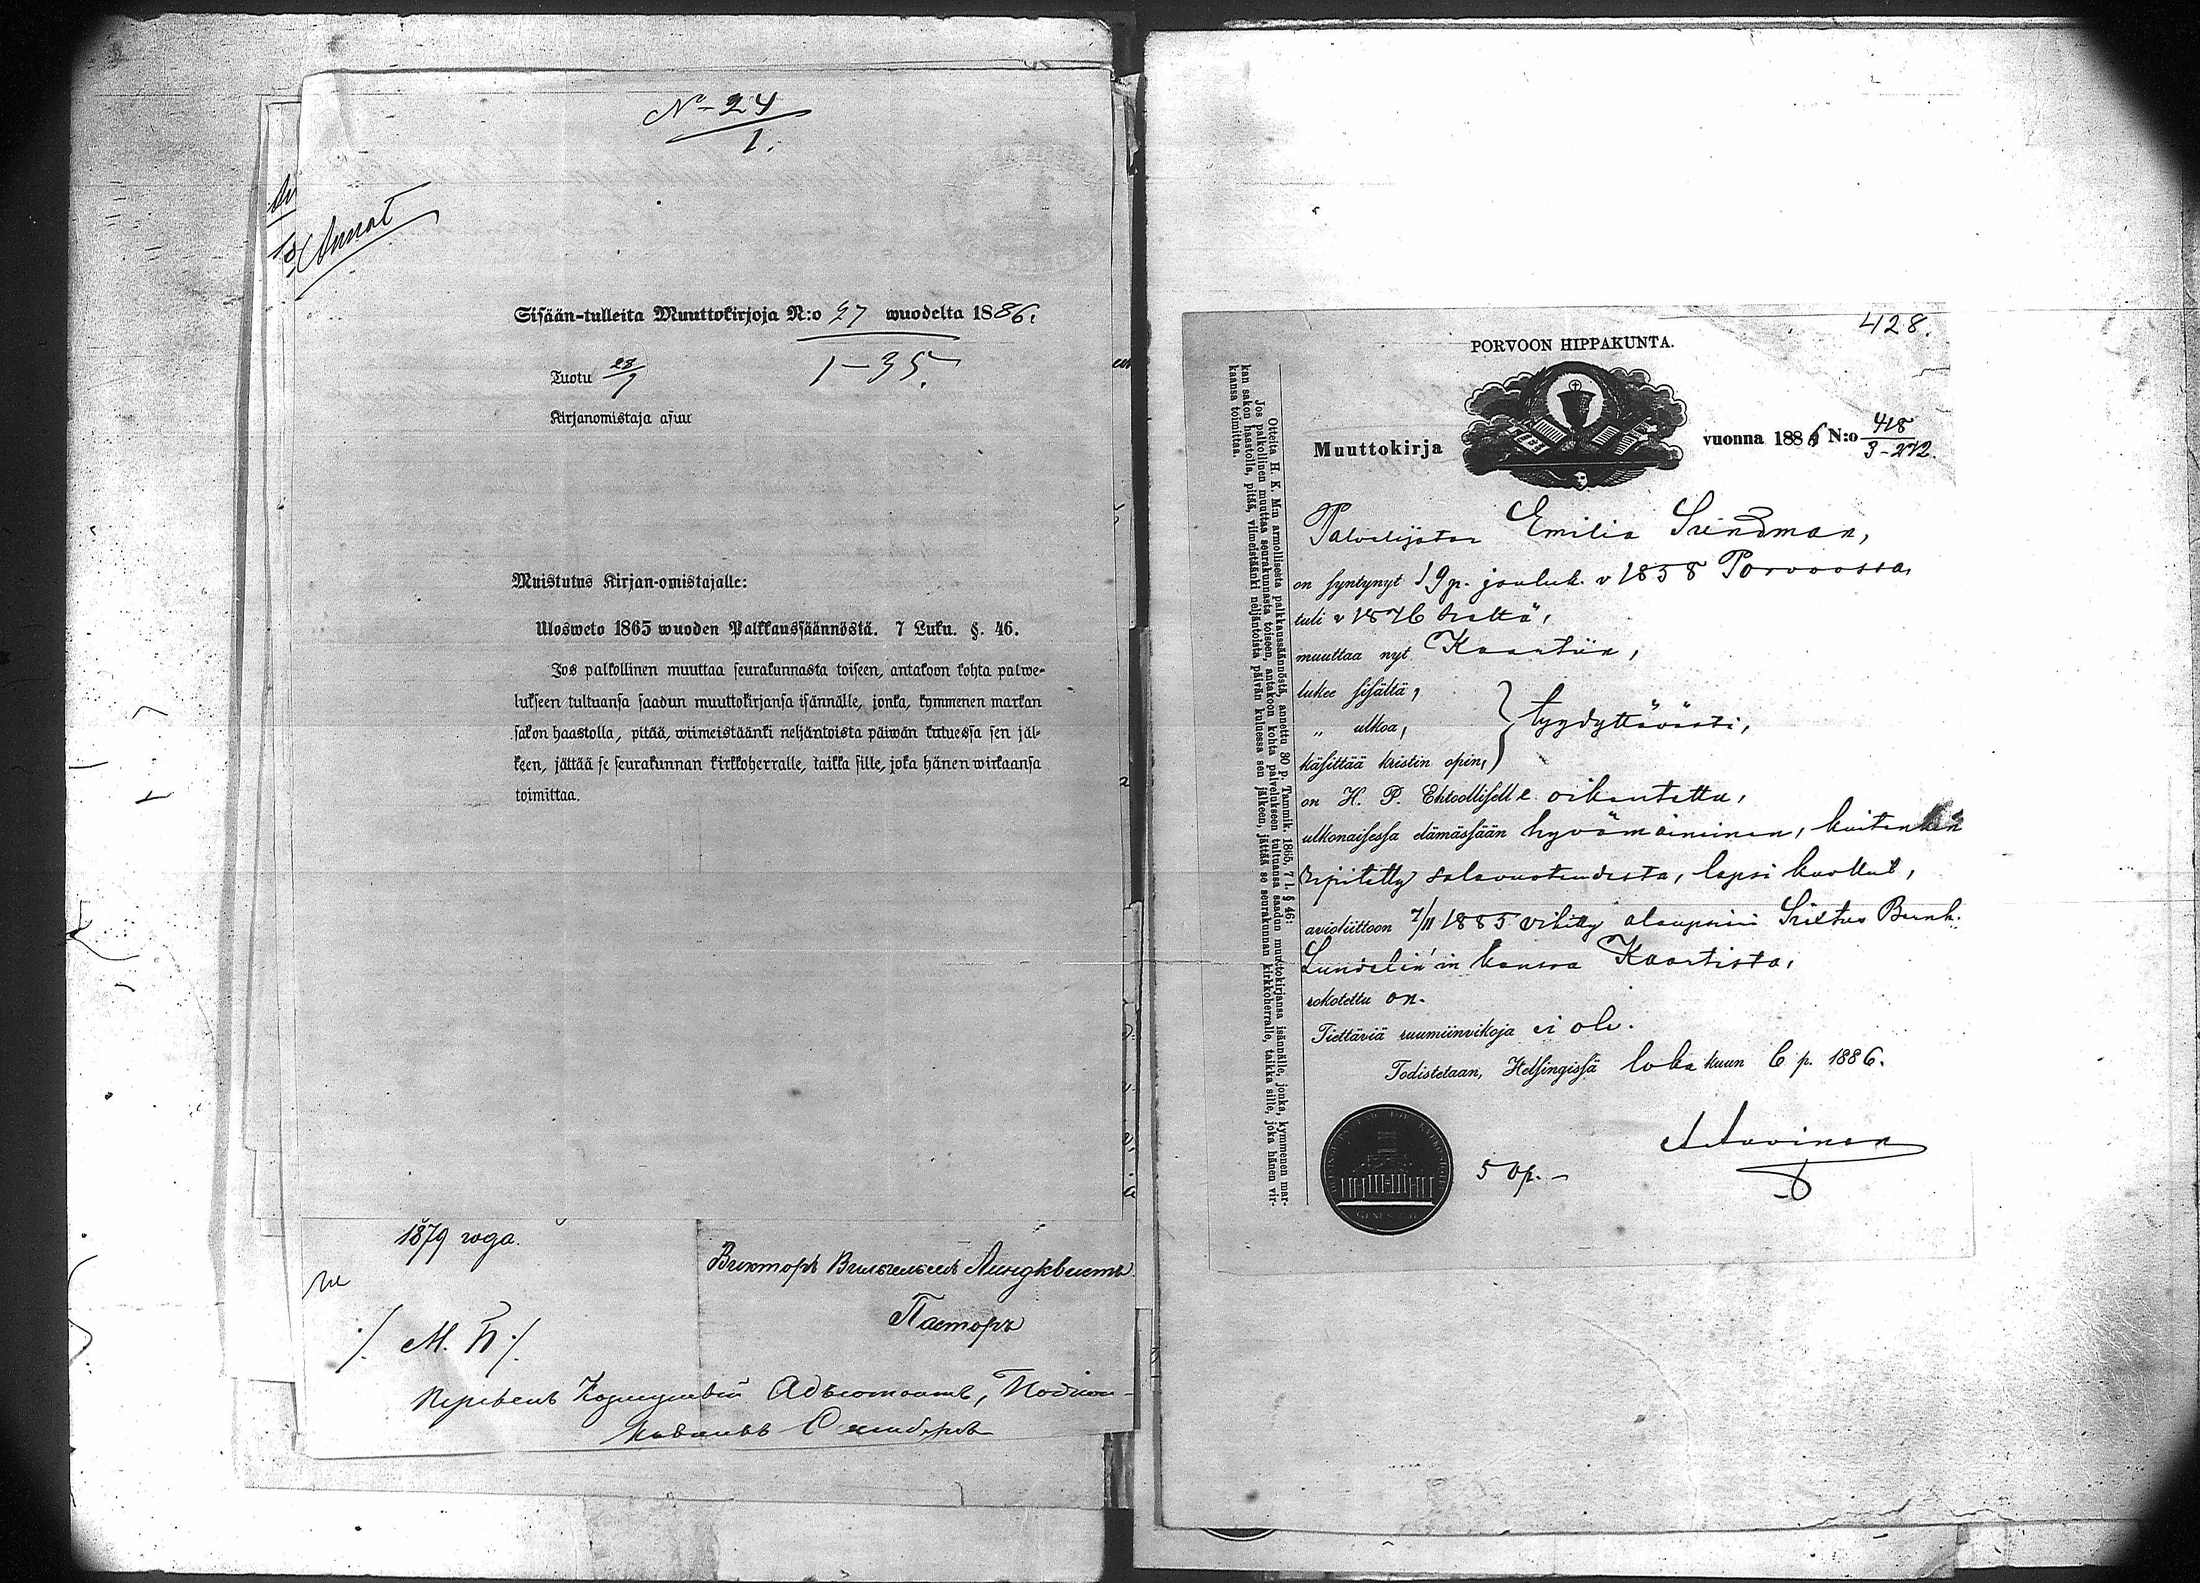 N:o 24
1.
Annat
Sisään-tulleita Muuttokirjoja N:o 27 wuodelta 1886.
1–35.
Tuotu 28/9
Kirjanomistaja asuu
Muistutus Kirjan-omistajalle:
Ulosweto 1865 wuoden Palkkaussäännöstä. 7 Luku. §. 46.
Jos palkollinen muuttaa seurakunnasta toiseen, antakoon kohta palwe-
lukseen tultuansa saadun muuttokirjansa isännälle, jonka, kymmenen markan
sakon haastolla, pitää, wiimeistäänki neljäntoista päiwän kuluessa sen jäl-
keen, jättää se seurakunnan kirkkoherralle, taikka sille, joka hänen wirkaansa
toimittaa.
1879 года.
Викторъ Вильгельмъ Линдквистъ
Пасторъ
/. М. П ./
428.
PORVOON HIPPAKUNTA.
Muuttokirja vuonna 1886 N:o 428
3-272.
Palvelijatar Emilia Lindman,
on syntynyt 19 p. jouluk. v 1858 Porvoossa,
tuli v 1876 sieltä,
muuttaa nyt Kaartiin,
lukee sisältä,
„ ulkoa, } tyydyttävästi,
käsittää kristin opin,
on H. P. Ehtoollisell e oikeutettu,
ulkonaisessa elämässään hyvämaininen, kuitenkin
ripitetty salavuoteudesta, lapsi kuollut,
avioliittoon 7/11 1885 vihitty alaupsieri Sixtus Bernh.
Lundelin'in kanssa Kaartista,
rokotettu on.
Tiettäviä ruumiinvikoja ei ole.
Todistetaan, Helsingissä loka kuun 6 p. 1886.
A Auvinen
50 p. –
Otteita H. K. M:n armollisesta palkkaussäännöstä, annettu 30 p. Tammik. 1865, 7 l. § 46:
Jos palkollinen muuttaa seurakunnasta toiseen, antakoon kohta palvelukseen tultuansa saadun muuttokirjansa isännälle, jonka, kymmenen mar-
kan sakon haastolla, pitää, viimeistäänki neljäntoista päivän kuluessa sen jälkeen, jättää se seurakunnan kirkkoherralle, taikka sille, joka hänen vir-
kaansa toimittaa.